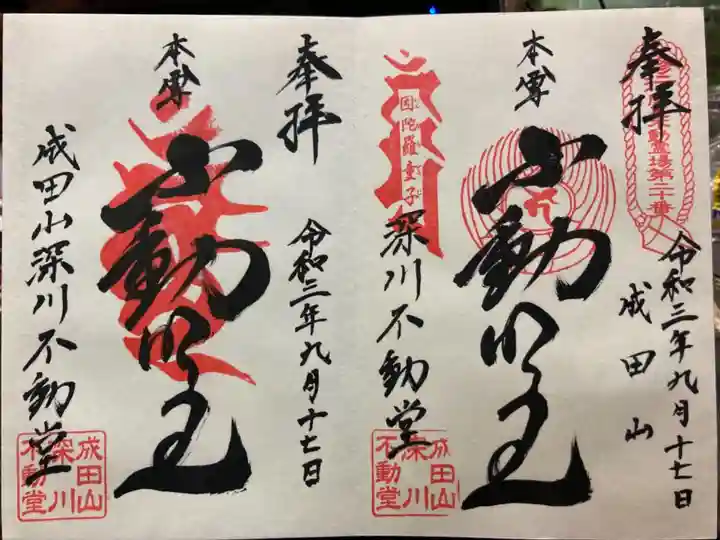 奉拝
令和三年九月十七日
成田山
本尊
不動明王
因陀羅童子
深川不動堂
成田山
深川
不動堂
奉拝
令和三年九月十七日
本尊
不動明王
成田山深川不動堂
成田山
深川
不動堂